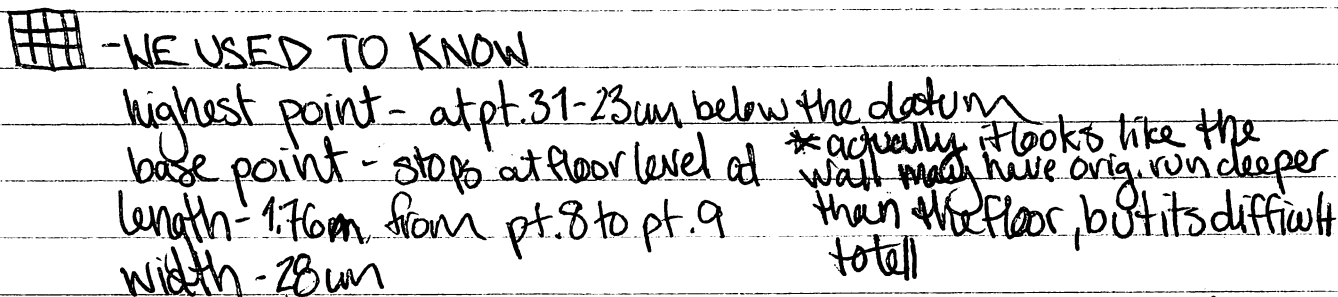 -WE USED TO KNOW
highest point - at pt. 31-23cm below the datum
base point - stops at floor level at
length - 1.76m from pt. 8 to pt. 9
width - 28cm
*actually it looks like the
wall may have orig. run deeper
than the floor, but its difficult
to tell